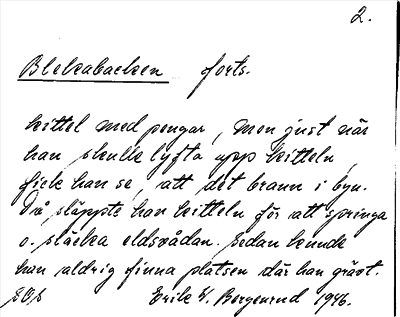 2.
Blekabacken forts.
kittel med pengar, men just när
han skulle lyfta upp kitteln,
fick han se, att det brann i byn.
Då släppte han kitteln för att springa
o. släcka eldsvådan. Sedan kunde
han aldrig finna platsen där han grävt.
Erik W. Bergenrud 1946.